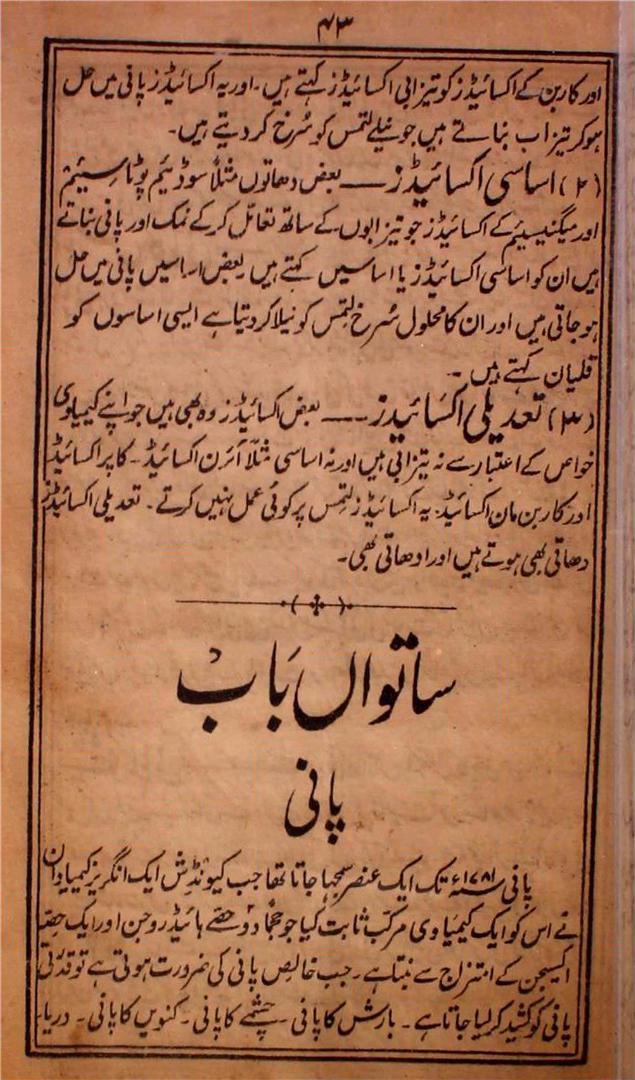 ۴۳
اور کاربن کے اکسائیڈز کو تیزابی اکسائیڈز کہتے ہیں۔ اور یہ اکسائیڈز پانی میں حل
ہو کر تیزاب بناتے ہیں جو نیلے لٹمس کو سُرخ کر دیتے ہیں۔
(۲) اساسی اکسائیڈز — بعض دھاتوں مثلاً سوڈیئم پوٹاسیئم
اور میگنیسیئم کے اکسائیڈز جو تیزابوں کے ساتھ تعامل کر کے نمک اور پانی بناتے
ہیں ان کو اساسی اکسائیڈز یا اساسیں کہتے ہیں بعض اساسیں پانی میں حل
ہو جاتی ہیں اور ان کا محلول سُرخ لٹمس کو نیلا کر دیتا ہے ایسی اساسوں کو
قلیان کہتے ہیں۔
(۳) تعدیلی اکسائیڈز — بعض اکسائیڈز وہ بھی ہیں جو اپنے کیمیاوی
خواص کے اعتبار سے نہ تیزابی ہیں اور نہ اساسی مثلاً آئرن اکسائیڈ۔ کاپر اکسائیڈ
اور کاربن مان اکسائیڈ۔ یہ اکسائیڈز لٹمس پر کوئی عمل نہیں کرتے۔ تعدیلی اکسائیڈز
دھاتی بھی ہوتے ہیں اور ادھاتی بھی۔
ساتواں باب
پانی
پانی ۱۷۸۱ء تک ایک عنصر سمجھا جاتا تھا جب کیونڈش ایک انگریز کیمیادان
نے اس کو ایک کیمیاوی مرکب ثابت کیا جو حجماً دو حصے ہائیڈروجن اور ایک حصہ
اکسیجن کے امتزاج سے بنتا ہے۔ جب خالص پانی کی ضرورت ہوتی ہے تو قدرتی
پانی کو کشید کر لیا جاتا ہے۔ بارش کا پانی۔ چشمے کا پانی۔ کنویں کا پانی۔ دریا۔